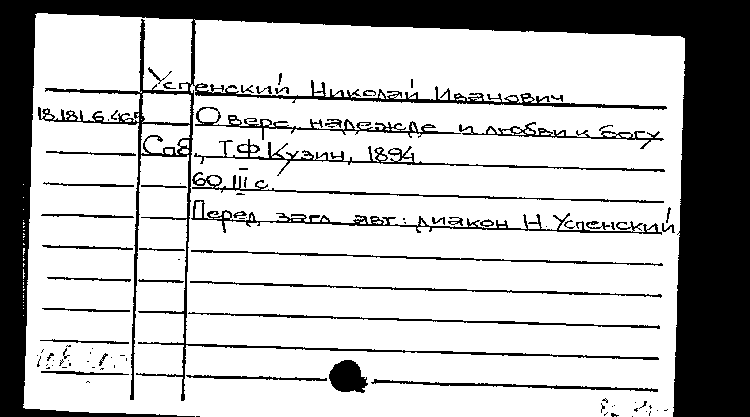 Успенский, Николай Иванович
18.181.6.465 О вере, надежде и любви к Богу
Спб., Т.Ф.Кузин, 1894.
60, III с.
Перед загл. авт.: диакон Н. Успенский